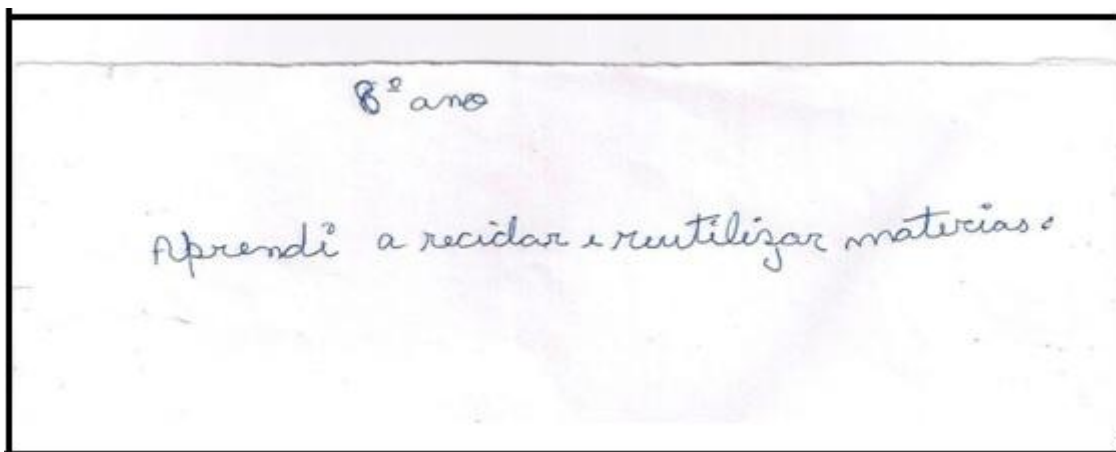 8º ano
Aprendi a reciclar e reutilizar materias.